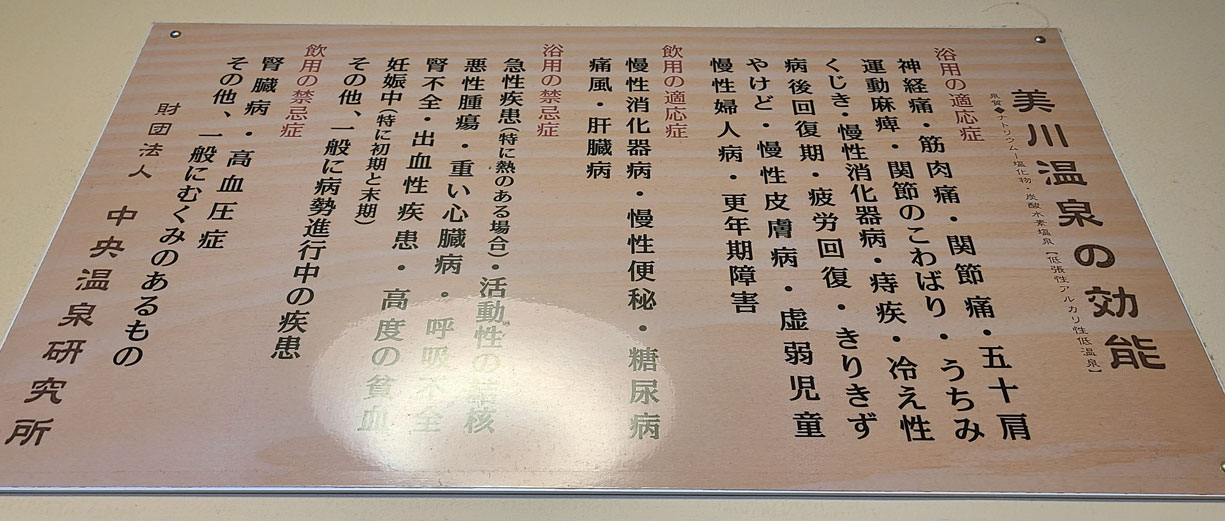 美川温泉の効能
泉質◆ナトリウム―塩化物・炭酸水素塩泉【低張性アルカリ性低温泉】
浴用の適応症
神経痛・筋肉痛・関節痛・五十肩
運動麻痺・関節のこわばり・うちみ
くじき・慢性消化器病・痔疾・冷え性
病後回復期・疲労回復・きりきず
やけど・慢性皮膚病・虚弱児童
慢性婦人病・更年期障害
飲用の適応症
慢性消化器病・慢性便秘・糖尿病
痛風・肝臓病
浴用の禁忌症
急性疾患(特に熱のある場合)・活動性の結核
悪性腫瘍・重い心臓病・呼吸不全
腎不全・出血性疾患・高度の貧血
妊娠中(特に初期と末期)
その他、一般に病勢進行中の疾患
飲用の禁忌症
腎臓病・高血圧症
その他、一般にむくみのあるもの
財団法人 中央温泉研究所